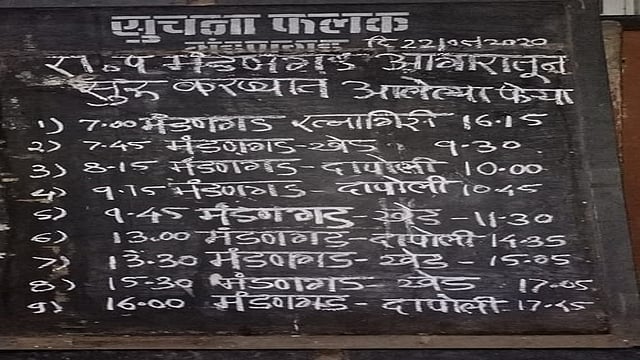 सुचना फलक
मंडणगड दि 22/05/2020
रा.प मंडणगड आगारातून
सुरू करण्यात आलेल्या फेऱ्या
१) 7.00 मंडणगड रत्नागिरी 16.15
२) 7.45 मंडणगड-खेड 9.30
३) 8.15 मंडणगड-दापोली 10.00
४) 9.15 मंडणगड-दापोली 10.45
५) 9.45 मंडणगड-खेड-11.30
६) 13.00 मंडणगड-दापोली 14.35
७) 13.30 मंडणगड-खेड-15.05
८) 15.30 मंडणगड-खेड 17.05
९) 16.00 मंडणगड-दापोली 17.45